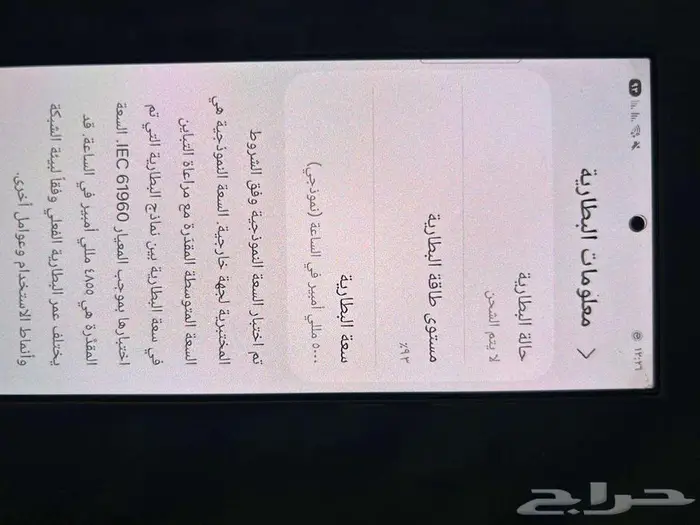 ١٢:٢٦
٩٣
معلومات البطارية
حالة البطارية
لا يتم الشحن
مستوى طاقة البطارية
٩٣٪
سعة البطارية
٥٠٠٠ مللي أمبير في الساعة (نموذجي)
تم اختبار السعة النموذجية وفق الشروط
المختبرية لجهة خارجية. السعة النموذجية هي
السعة المتوسطة المقدّرة مع مراعاة التباين
في سعة البطارية بين نماذج البطارية التي تم
اختبارها بموجب المعيار IEC 61960. السعة
المقدّرة هي ٤٨٥٥ مللي أمبير في الساعة. قد
يختلف عمر البطارية الفعلي وفقاً لبيئة الشبكة
وأنماط الاستخدام وعوامل أخرى.
حراج